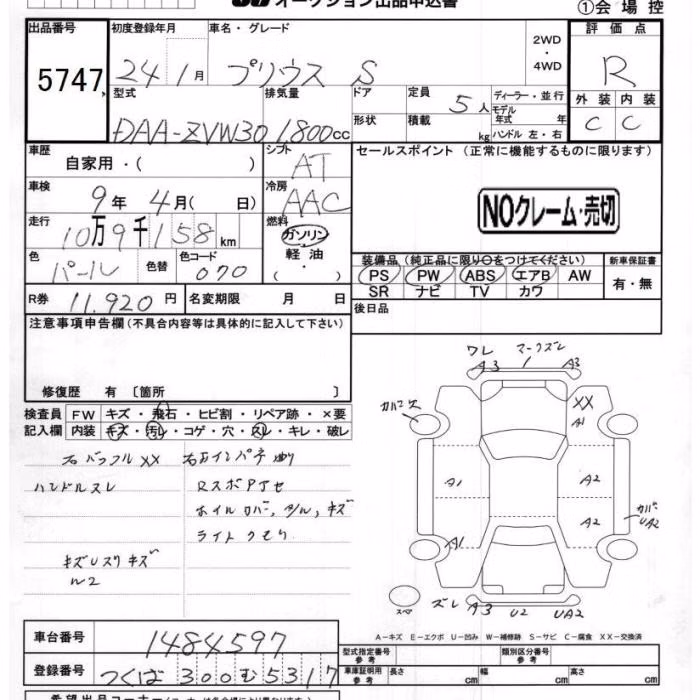 オークション出品申込書
①会場控
出品番号 初度登録年月 車名・グレード 評価点
5747 24 1月 プリウス S 2WD・4WD R
型式 排気量 ドア 定員 ディーラー・並行 外装 内装
DAA-ZVW30 1800cc 形状 積載 5人 kg モデル年式 年 ハンドル 左・右 C C
車歴 シフト セールスポイント (正常に機能するものに限ります)
自家用・( ) AT
車検 冷房
9年 4月( 日) AAC NOクレーム・売切
走行 燃料
10万9千158km ガソリン
色 色替 色コード 軽油 装備品 (純正品に限り○をつけてください) 新車保証書
パール 070 ( ) PS PW ABS エアB AW 有・無
R券 11,920円 名変期限 月 日 SR ナビ TV カワ
注意事項申告欄 (不具合内容等は具体的に記入して下さい) 後日品
修復歴 有 〔箇所 〕
検査員 FW キズ・飛石・ヒビ割・リペア跡・×要
記入欄 内装 キズ・汚レ・コゲ・穴・スレ・キレ・破レ
右バッフルXX
ハンドルスレ RスポPJセ
ホイルカバー, キズ
ライトクモリ
ワレ マークズレ
A3 1 A3
XX
A1
A1 A2
A2 カバー UA2
A1
スペア ズレ A3 U2 UA2
A-キズ E-エクボ U-凹み W-補修跡 S-サビ C-腐食 XX-交換済
車台番号 1484597 型式指定番号 参考 類別区分番号 参考
登録番号 つくば 300 む 5317 車庫証明用 参考 長さ cm 幅 cm 高さ cm